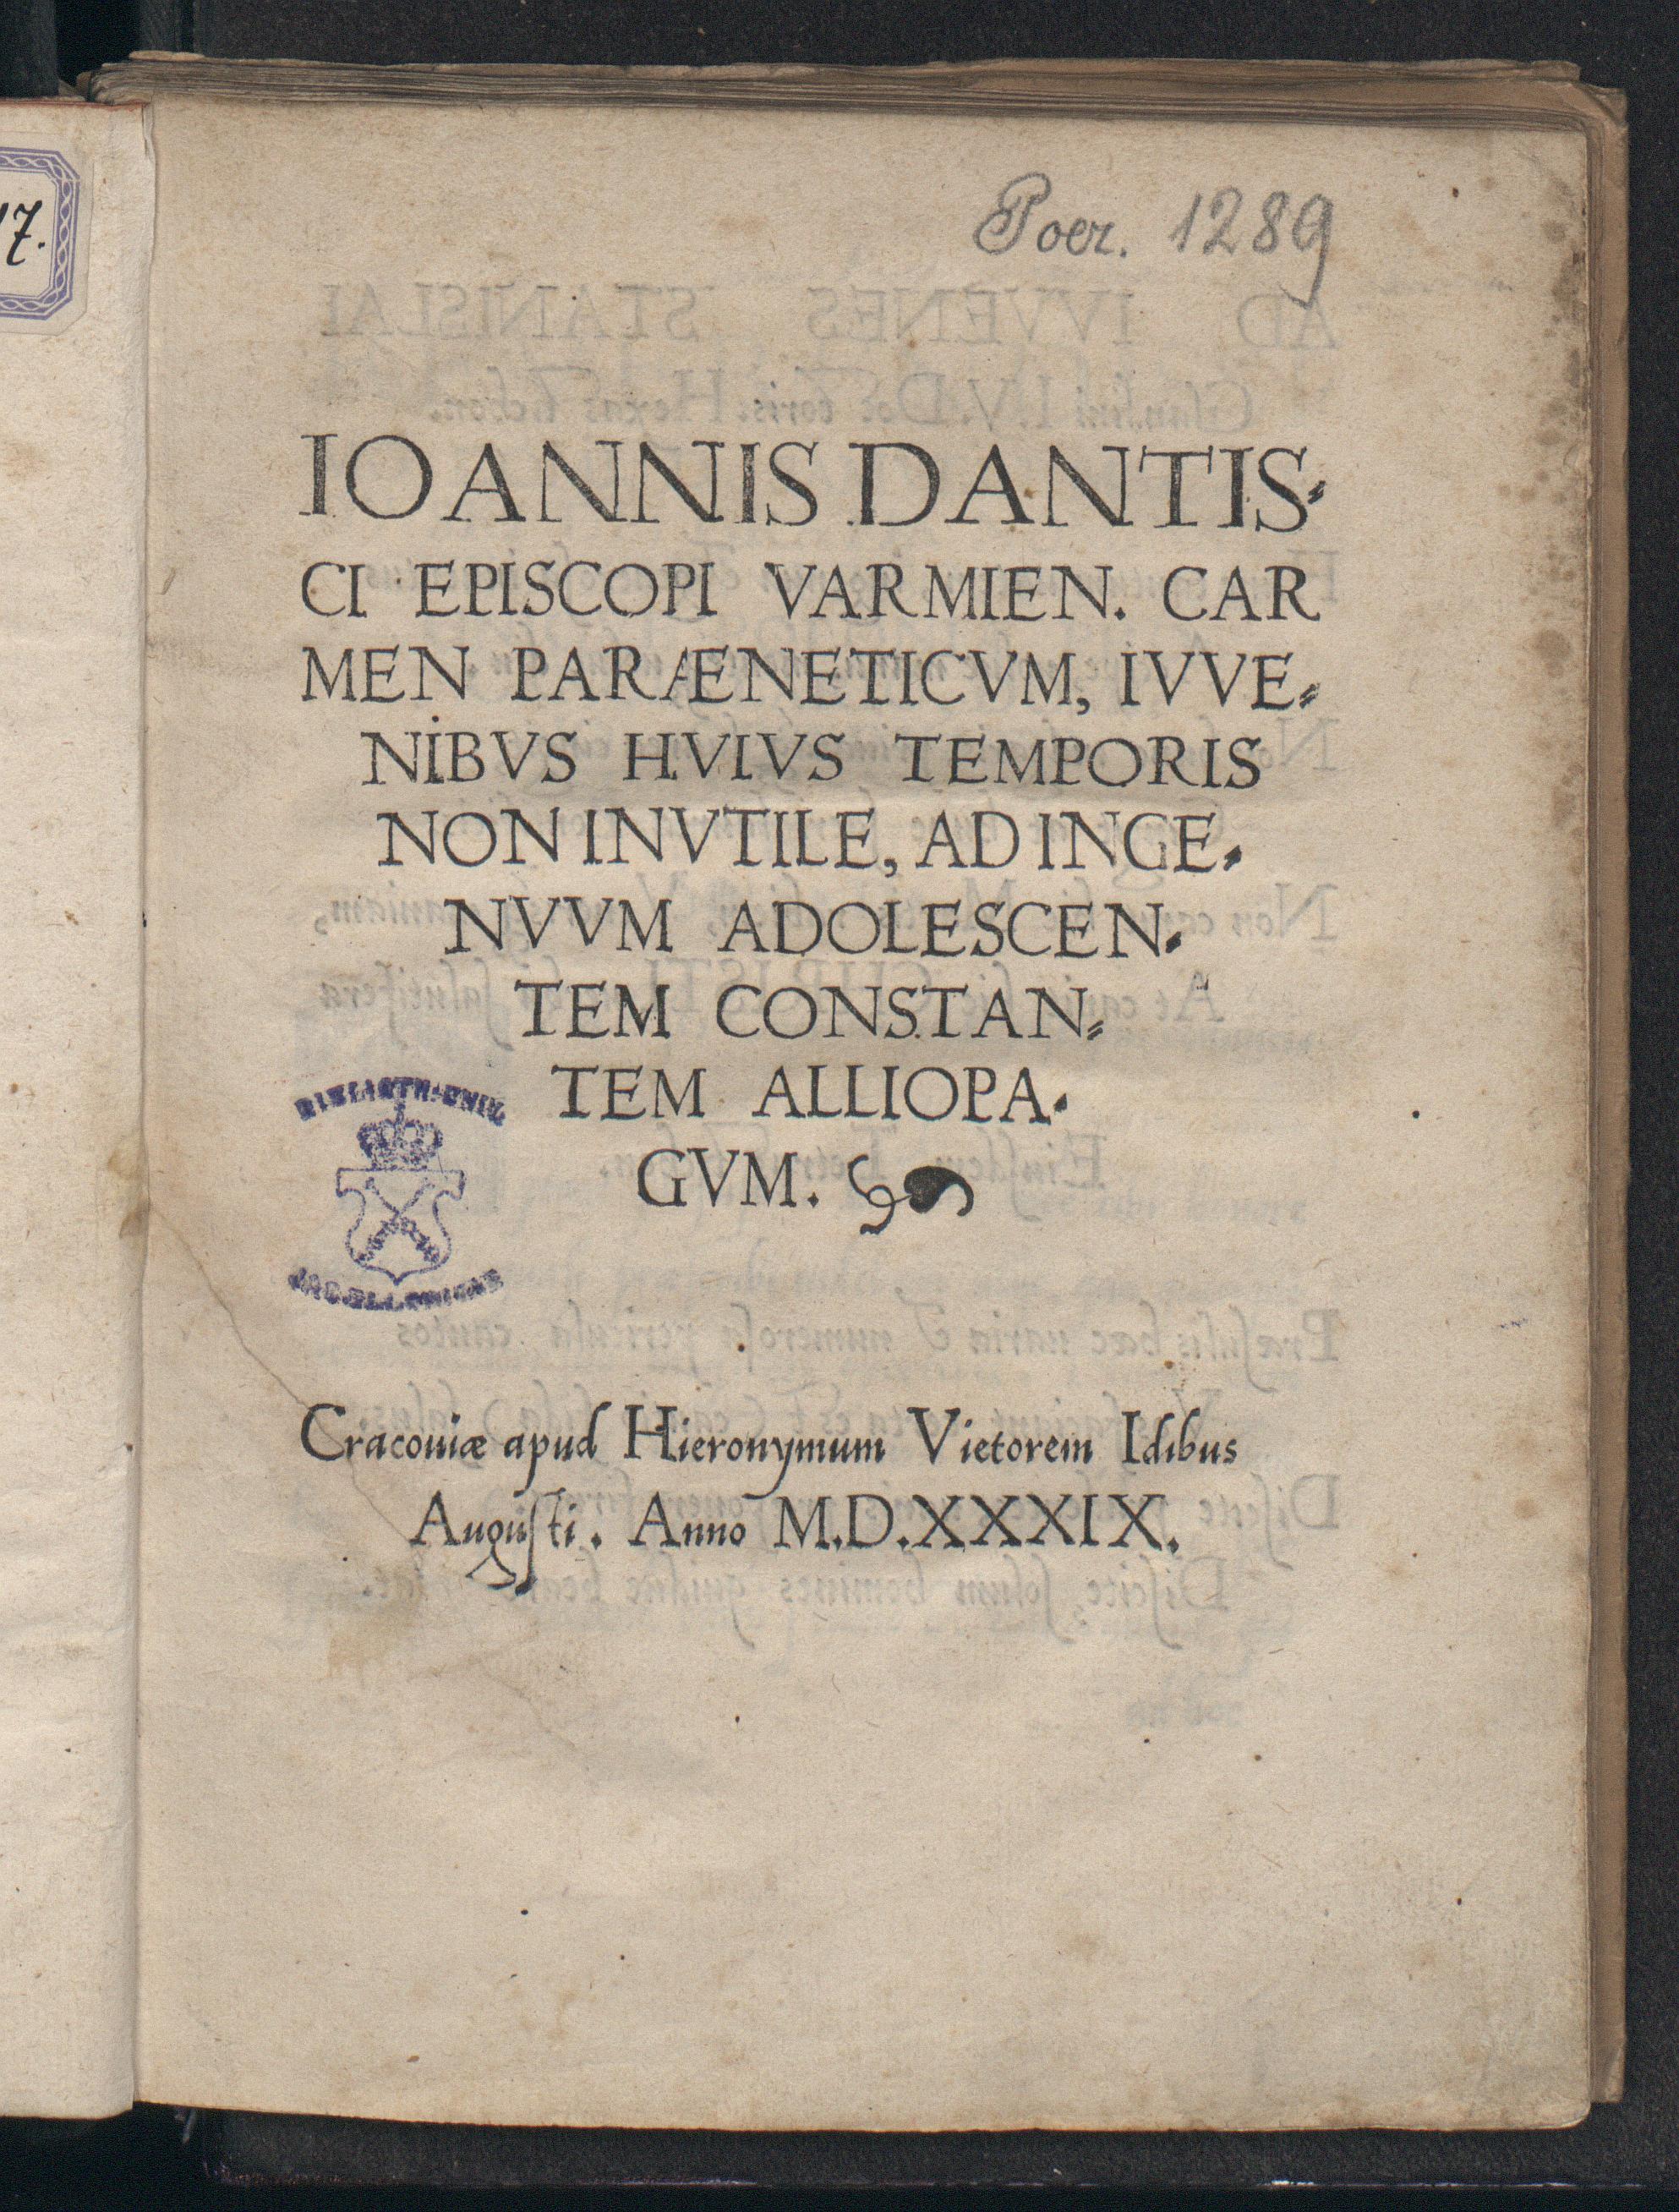 17.
Poet. 1289
IOANNIS DANTIS⸗
CI EPISCOPI VARMIEN. CAR
MEN PARÆNETICVM, IVVE⸗
NIBVS HVIVS TEMPORIS
NON INVTILE, AD INGE⸗
NVVM ADOLESCEN⸗
TEM CONSTAN⸗
TEM ALLIOPA⸗
GVM.
BIBLIOTH. UNIV.
JAGELLONICAE
Cracouiæ apud Hieronymum Vietorem Idibus
Auguſti. Anno M.D.XXXIX.